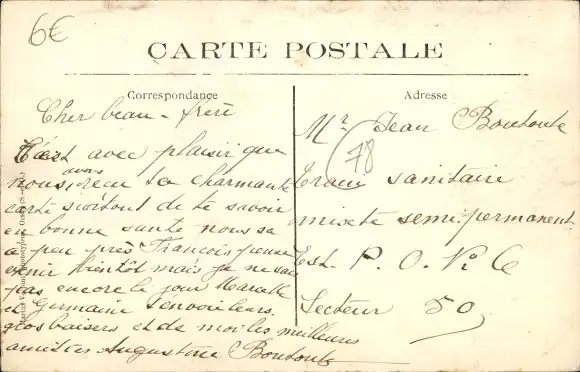 6€
CARTE POSTALE
Correspondance
Adresse
Cher beau-frère
C'est avec plaisir que
nous avons recu ta charmante
carte surtout de te savoir
en bonne sante nous sa
a peu près François pense
venir bientôt mais je ne sais
pas encore le jour Marcelle
et Germaine t'envoi leurs
gros baisers et de moi les meilleures
amities Augustine Boutoute
Mr Jean Boutoute
78
Train sanitaire
mixte semi permanent
Est P. O. N° 6
Secteur 50